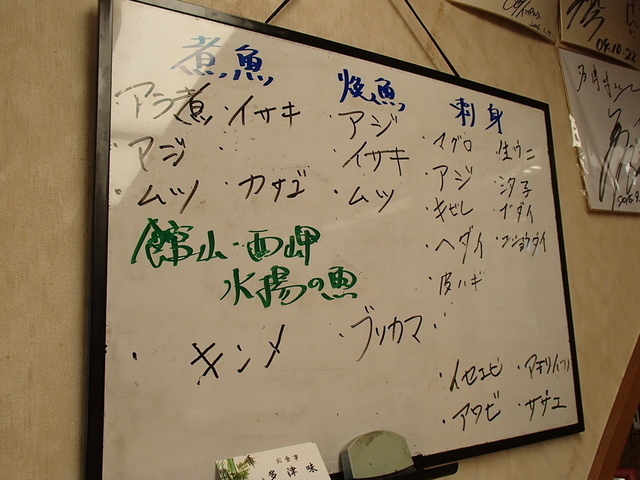 煮魚
アラ煮 ・イサキ
・アジ
・ムツ ・カサゴ
焼魚
・アジ
・イサキ
・ムツ
刺身
・マグロ ・生ウニ
・アジ
・ヘダイ ・コショウダイ
・皮ハギ
館山・西岬
水揚の魚
・キンメ ・ブリカマ
・イセエビ
・アワビ ・サザエ
お食事
多津味